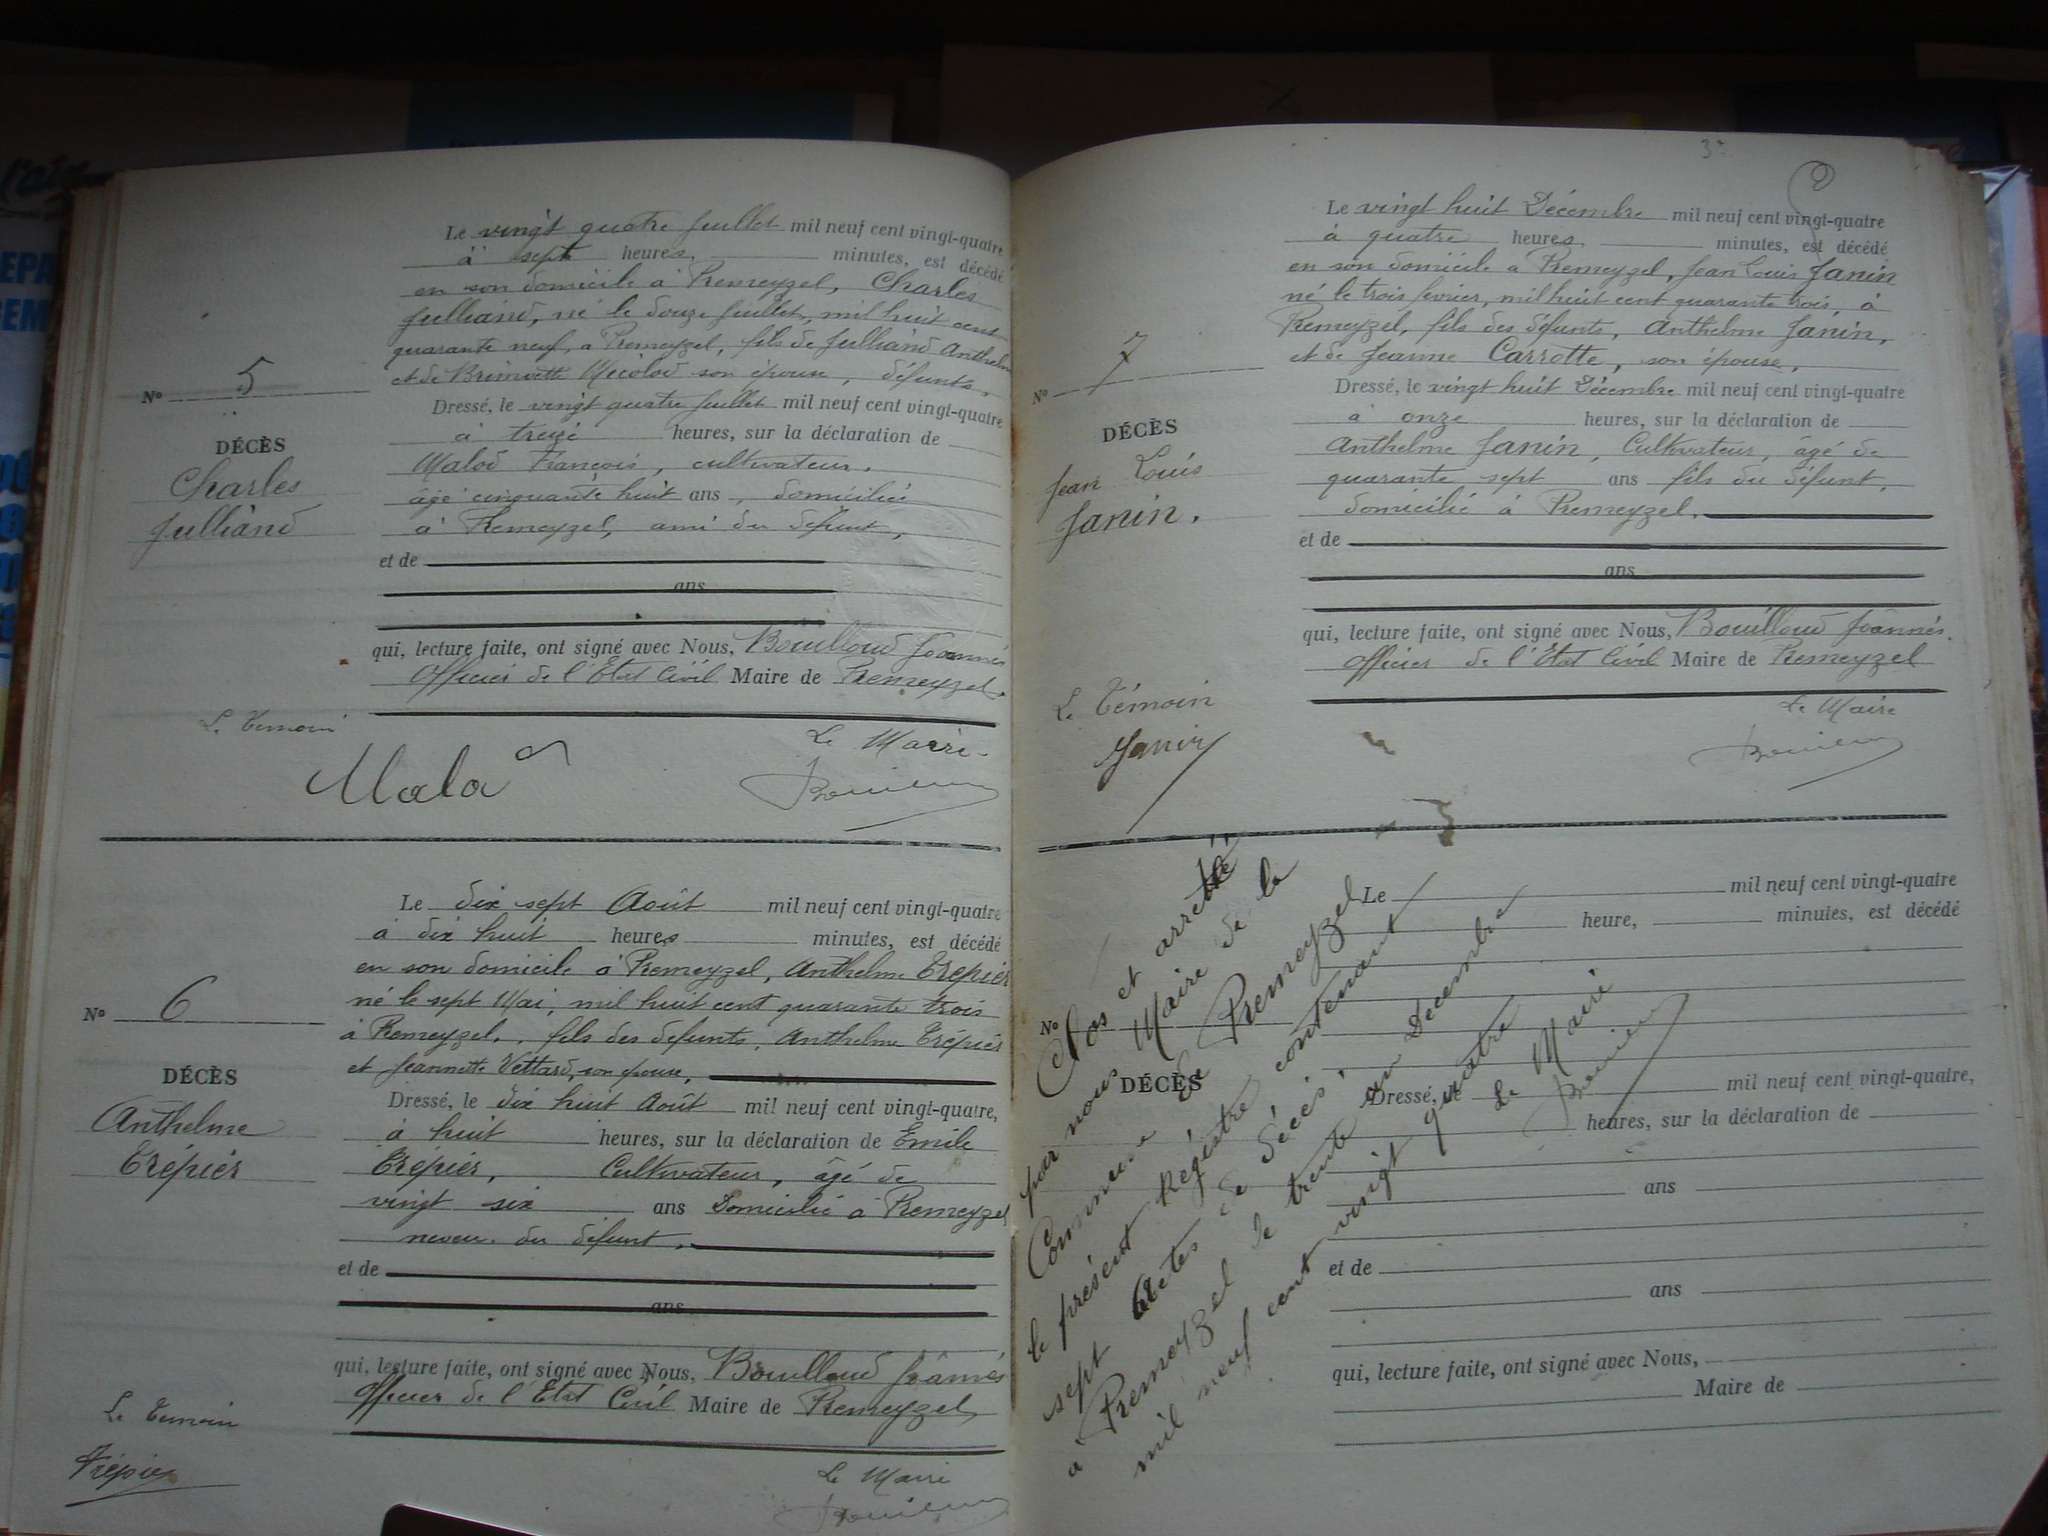 Le vingt quatre Juillet mil neuf cent vingt-quatre
à sept heures, minutes, est décédé
en son domicile à Premeyzel, Charles
Julliand, né le douze Juillet, mil huit cent
quarante neuf, à Premeyzel, fils de Julliand Anthelme
et de son épouse, défunts,
No 5
DÉCÈS
Charles
Julliand
Dressé, le vingt quatre Juillet mil neuf cent vingt-quatre
à treize heures, sur la déclaration de
Malod François, cultivateur,
âgé cinquante huit ans, domicilié
à Premeyzel, ami du défunt,
et de
ans
qui, lecture faite, ont signé avec Nous, Bouilloud Joannès
Officier de l'Etat Civil Maire de Premeyzel.
Le Temoin
Le Maire
Malod
Le dix sept Août mil neuf cent vingt-quatre
à dix huit heures minutes, est décédé
en son domicile à Premeyzel, Anthelme Trépier
né le sept Mai, mil huit cent quarante trois
à Premeyzel, fils des défunts, Anthelme Trépier
et Jeannette Vettard, son épouse,
No 6
DÉCÈS
Anthelme
Trépier
Dressé, le dix huit Août mil neuf cent vingt-quatre,
à huit heures, sur la déclaration de Emile
Trépier, Cultivateur, âgé de
vingt six ans Domicilié à Premeyzel
neveu du défunt,
et de
ans
qui, lecture faite, ont signé avec Nous, Bouilloud Joannès
Officier de l'Etat Civil Maire de Premeyzel
Le Temoin
Trépier
Le Maire
Le vingt huit Décembre mil neuf cent vingt-quatre
à quatre heures, minutes, est décédé
en son domicile à Premeyzel, Jean Louis Janin
né le trois fevrier, mil huit cent quarante trois, à
Premeyzel, fils des défunts, Anthelme Janin,
et de Jeanne Carrotte, son épouse,
No 7
DÉCÈS
Jean Louis
Janin.
Dressé, le vingt huit Décembre mil neuf cent vingt-quatre
à onze heures, sur la déclaration de
Anthelme Janin, Cultivateur, âgé de
quarante sept ans fils du défunt,
domicilié à Premeyzel.
et de
ans
qui, lecture faite, ont signé avec Nous, Bouilloud Joannès.
Officier de l'Etat Civil Maire de Premeyzel
Le Témoin
Janin
Le Maire
Le mil neuf cent vingt-quatre
heure, minutes, est décédé
No
DÉCÈS
Dressé, le mil neuf cent vingt-quatre,
heures, sur la déclaration de
ans
et de
ans
qui, lecture faite, ont signé avec Nous,
Maire de
Clos et arrêté
par nous Maire de la
Commune de Premeyzel
le présent Régistre contenant
sept Actes de décès.
à Premeyzel le trente un Décembre
mil neuf cent vingt quatre
Le Maire